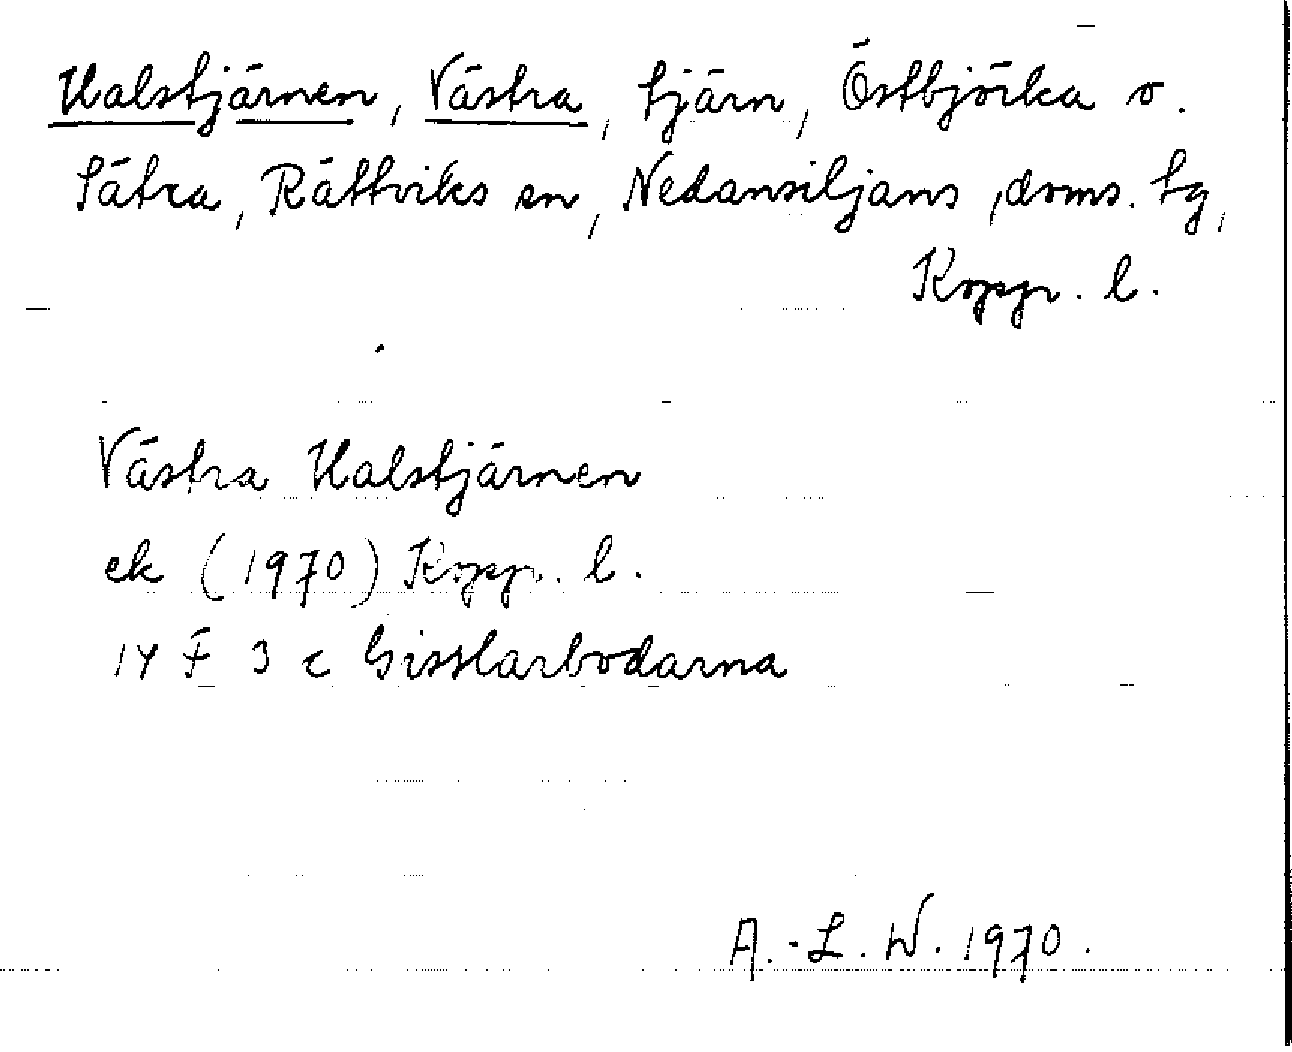 Ualstjärnen, Västra, tjärn, Östbjörka o.
Sätra, Rättviks sn, Nedansiljans doms. tg,
Koppr. l.
Västra Ualstjärnen
ek (1970) Koppr. l.
14 F 3 c Gisslarbodarna
A.-L. W. 1970.